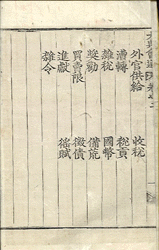 外官供給 收稅
漕轉 稅貢
雜稅 國幣
獎勸 備荒
買賣限 徵債
進獻 徭賦
雜令